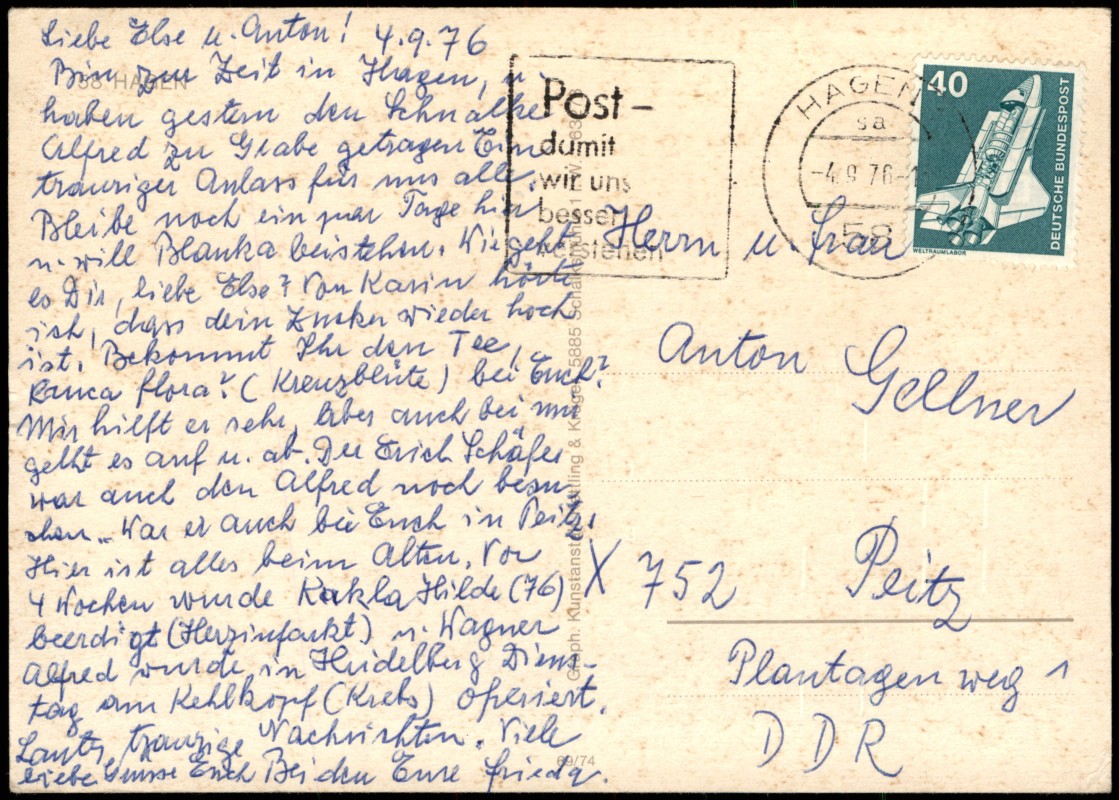 Liebe Else u. Anton! 4.9.76
Bin zur Zeit in Hagen, u.
haben gestern den Schnalke
Alfred zu Grabe getragen Ein
trauriger Anlass für uns alle.
Bleibe noch ein paar Tage hier
u. will Blanka beistehen. Wie geht
es Dir, liebe Else? Von Karin hörte
ich, dass dein Zucker wieder hoch
ist. Bekommt Ihr den Tee,
flora? (Kreuzblüte) bei Euch?
Mir hilft er sehr, Aber auch bei mir
geht es auf u. ab. Der Erich Schäfer
war auch den Alfred noch besu-
chen. War er auch bei Euch in Peitz.
Hier ist alles beim Alten. Vor
4 Wochen wurde Hilde (76)
beerdigt (Herzinfarkt) u. Wagner
Alfred wurde in Heidelberg Diens-
tag am Kehlkopf (Krebs) operiert.
Lauter traurige Nachrichten. Viele
liebe Grüsse Euch Beiden Eure Frieda.
58 HAGEN
Post-
damit
wir uns
besser
verstehen
HAGEN 1
sa
-4.9.76-
58
40
DEUTSCHE BUNDESPOST
WELTRAUMLABOR
Herrn u Frau
Anton Gellner
X 752 Peitz
Plantagenweg 1
DDR
Graph. Kunstanstalt & 5885
69/74